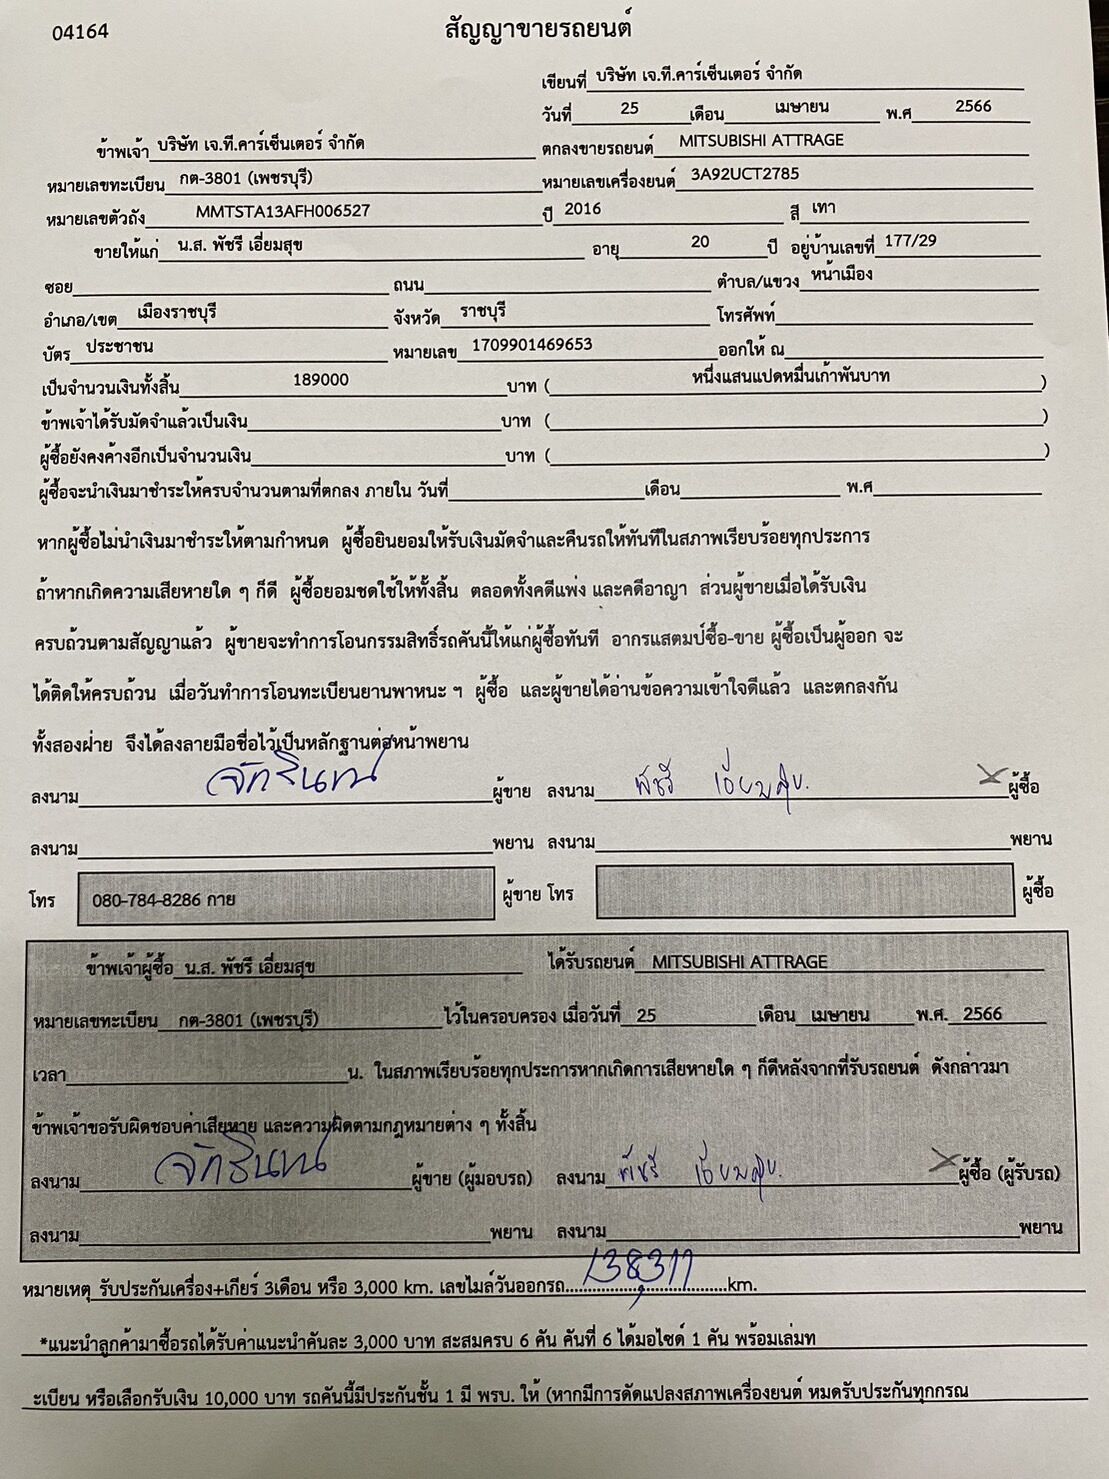 04164
สัญญาขายรถยนต์
เขียนที่ บริษัท เจ.ที.คาร์เซ็นเตอร์ จำกัด
วันที่ 25 เดือน เมษายน พ.ศ 2566
ข้าพเจ้า บริษัท เจ.ที.คาร์เซ็นเตอร์ จำกัด ตกลงขายรถยนต์ MITSUBISHI ATTRAGE
หมายเลขทะเบียน กต-3801 (เพชรบุรี) หมายเลขเครื่องยนต์ 3A92UCT2785
หมายเลขตัวถัง MMTSTA13AFH006527 ปี 2016 สี เทา
ขายให้แก่ น.ส. พัชรี เอี่ยมสุข อายุ 20 ปี อยู่บ้านเลขที่ 177/29
ซอย ถนน ตำบล/แขวง หน้าเมือง
อำเภอ/เขต เมืองราชบุรี จังหวัด ราชบุรี โทรศัพท์
บัตร ประชาชน หมายเลข 1709901469653 ออกให้ ณ
เป็นจำนวนเงินทั้งสิ้น 189000 บาท ( หนึ่งแสนแปดหมื่นเก้าพันบาท )
ข้าพเจ้าได้รับมัดจำแล้วเป็นเงิน บาท ( )
ผู้ซื้อยังคงค้างอีกเป็นจำนวนเงิน บาท ( )
ผู้ซื้อจะนำเงินมาชำระให้ครบจำนวนตามที่ตกลง ภายใน วันที่ เดือน พ.ศ
หากผู้ซื้อไม่นำเงินมาชำระให้ตามกำหนด ผู้ซื้อยินยอมให้รับเงินมัดจำและคืนรถให้ทันทีในสภาพเรียบร้อยทุกประการ
ถ้าหากเกิดความเสียหายใด ๆ ก็ดี ผู้ซื้อยอมชดใช้ให้ทั้งสิ้น ตลอดทั้งคดีแพ่ง และคดีอาญา ส่วนผู้ขายเมื่อได้รับเงิน
ครบถ้วนตามสัญญาแล้ว ผู้ขายจะทำการโอนกรรมสิทธิ์รถคันนี้ให้แก่ผู้ซื้อทันที อากรแสตมป์ซื้อ-ขาย ผู้ซื้อเป็นผู้ออก จะ
ได้ติดให้ครบถ้วน เมื่อวันทำการโอนทะเบียนยานพาหนะ ฯ ผู้ซื้อ และผู้ขายได้อ่านข้อความเข้าใจดีแล้ว และตกลงกัน
ทั้งสองฝ่าย จึงได้ลงลายมือชื่อไว้เป็นหลักฐานต่อหน้าพยาน
ลงนาม จักรินทน์ ผู้ขาย ลงนาม พัชรี เอี่ยมสุข ผู้ซื้อ
ลงนาม พยาน ลงนาม พยาน
โทร 080-784-8286 กาย ผู้ขาย โทร ผู้ซื้อ
ข้าพเจ้าผู้ซื้อ น.ส. พัชรี เอี่ยมสุข ได้รับรถยนต์ MITSUBISHI ATTRAGE
หมายเลขทะเบียน กต-3801 (เพชรบุรี) ไว้ในครอบครอง เมื่อวันที่ 25 เดือน เมษายน พ.ศ. 2566
เวลา น. ในสภาพเรียบร้อยทุกประการหากเกิดการเสียหายใด ๆ ก็ดีหลังจากที่รับรถยนต์ ดังกล่าวมา
ข้าพเจ้าขอรับผิดชอบค่าเสียหาย และความผิดตามกฎหมายต่าง ๆ ทั้งสิ้น
ลงนาม จักรินทน์ ผู้ขาย (ผู้มอบรถ) ลงนาม พัชรี เอี่ยมสุข ผู้ซื้อ (ผู้รับรถ)
ลงนาม พยาน ลงนาม พยาน
หมายเหตุ รับประกันเครื่อง+เกียร์ 3เดือน หรือ 3,000 km. เลขไมล์วันออกรถ 138,317 km.
*แนะนำลูกค้ามาซื้อรถได้รับค่าแนะนำคันละ 3,000 บาท สะสมครบ 6 คัน คันที่ 6 ได้มอไซด์ 1 คัน พร้อมเล่มท
ะเบียน หรือเลือกรับเงิน 10,000 บาท รถคันนี้มีประกันชั้น 1 มี พรบ. ให้ (หากมีการดัดแปลงสภาพเครื่องยนต์ หมดรับประกันทุกกรณ